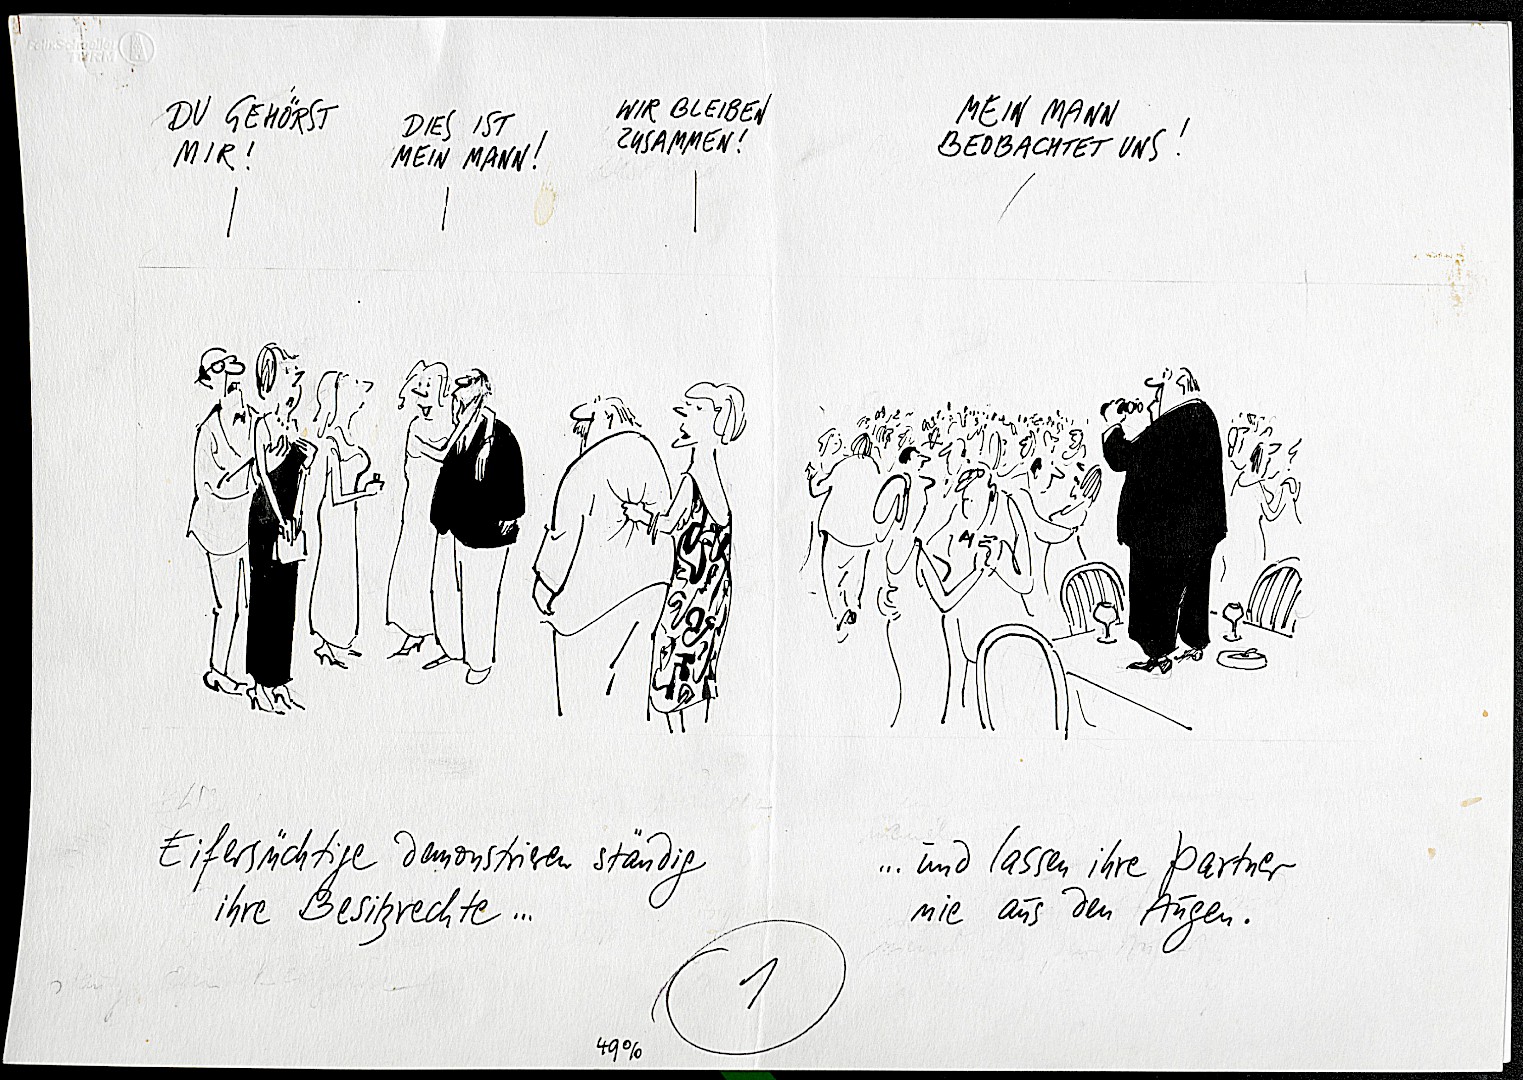 Felix Schoeller
TURM
DU GEHÖRST
MIR!
DIES IST
MEIN MANN!
WIR BLEIBEN
ZUSAMMEN!
MEIN MANN
BEOBACHTET UNS!
Eifersüchtige demonstrieren ständig
ihre Besitzrechte...
... und lassen ihre Partner
nie aus den Augen.
1
49%